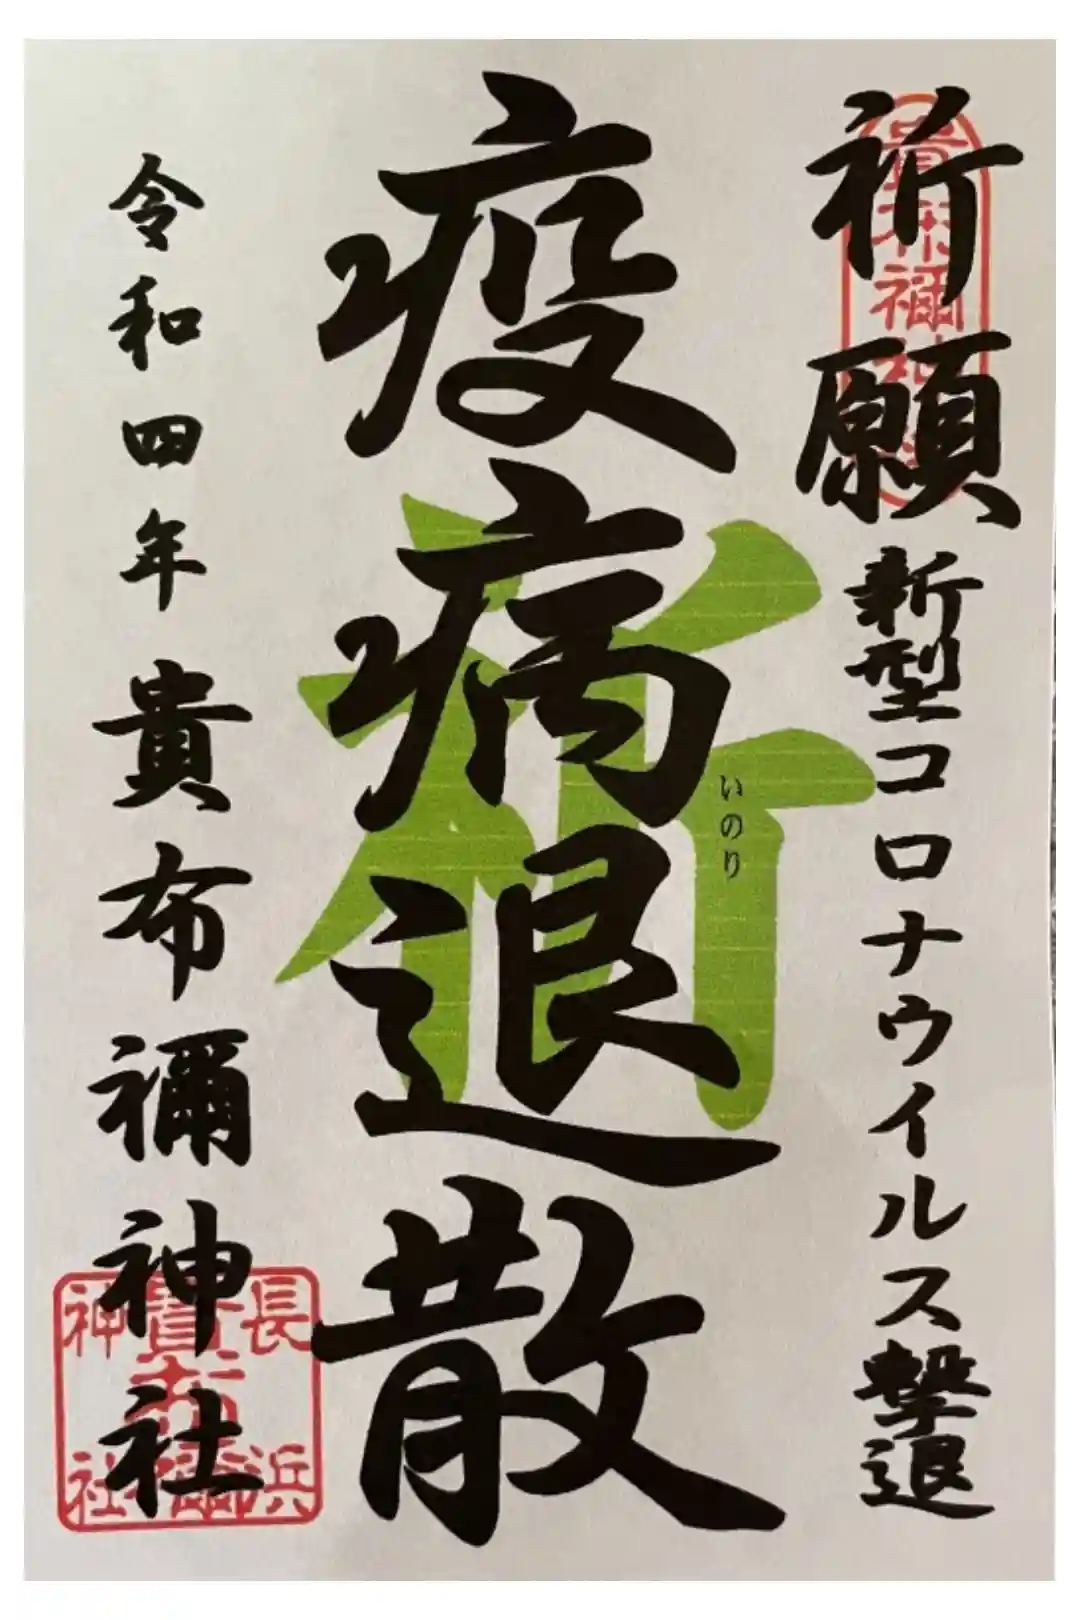 祈願 新型コロナウイルス撃退
貴布禰神社
疫病退散
祈
いのり
令和四年 貴布禰神社
長浜
貴布禰
神社